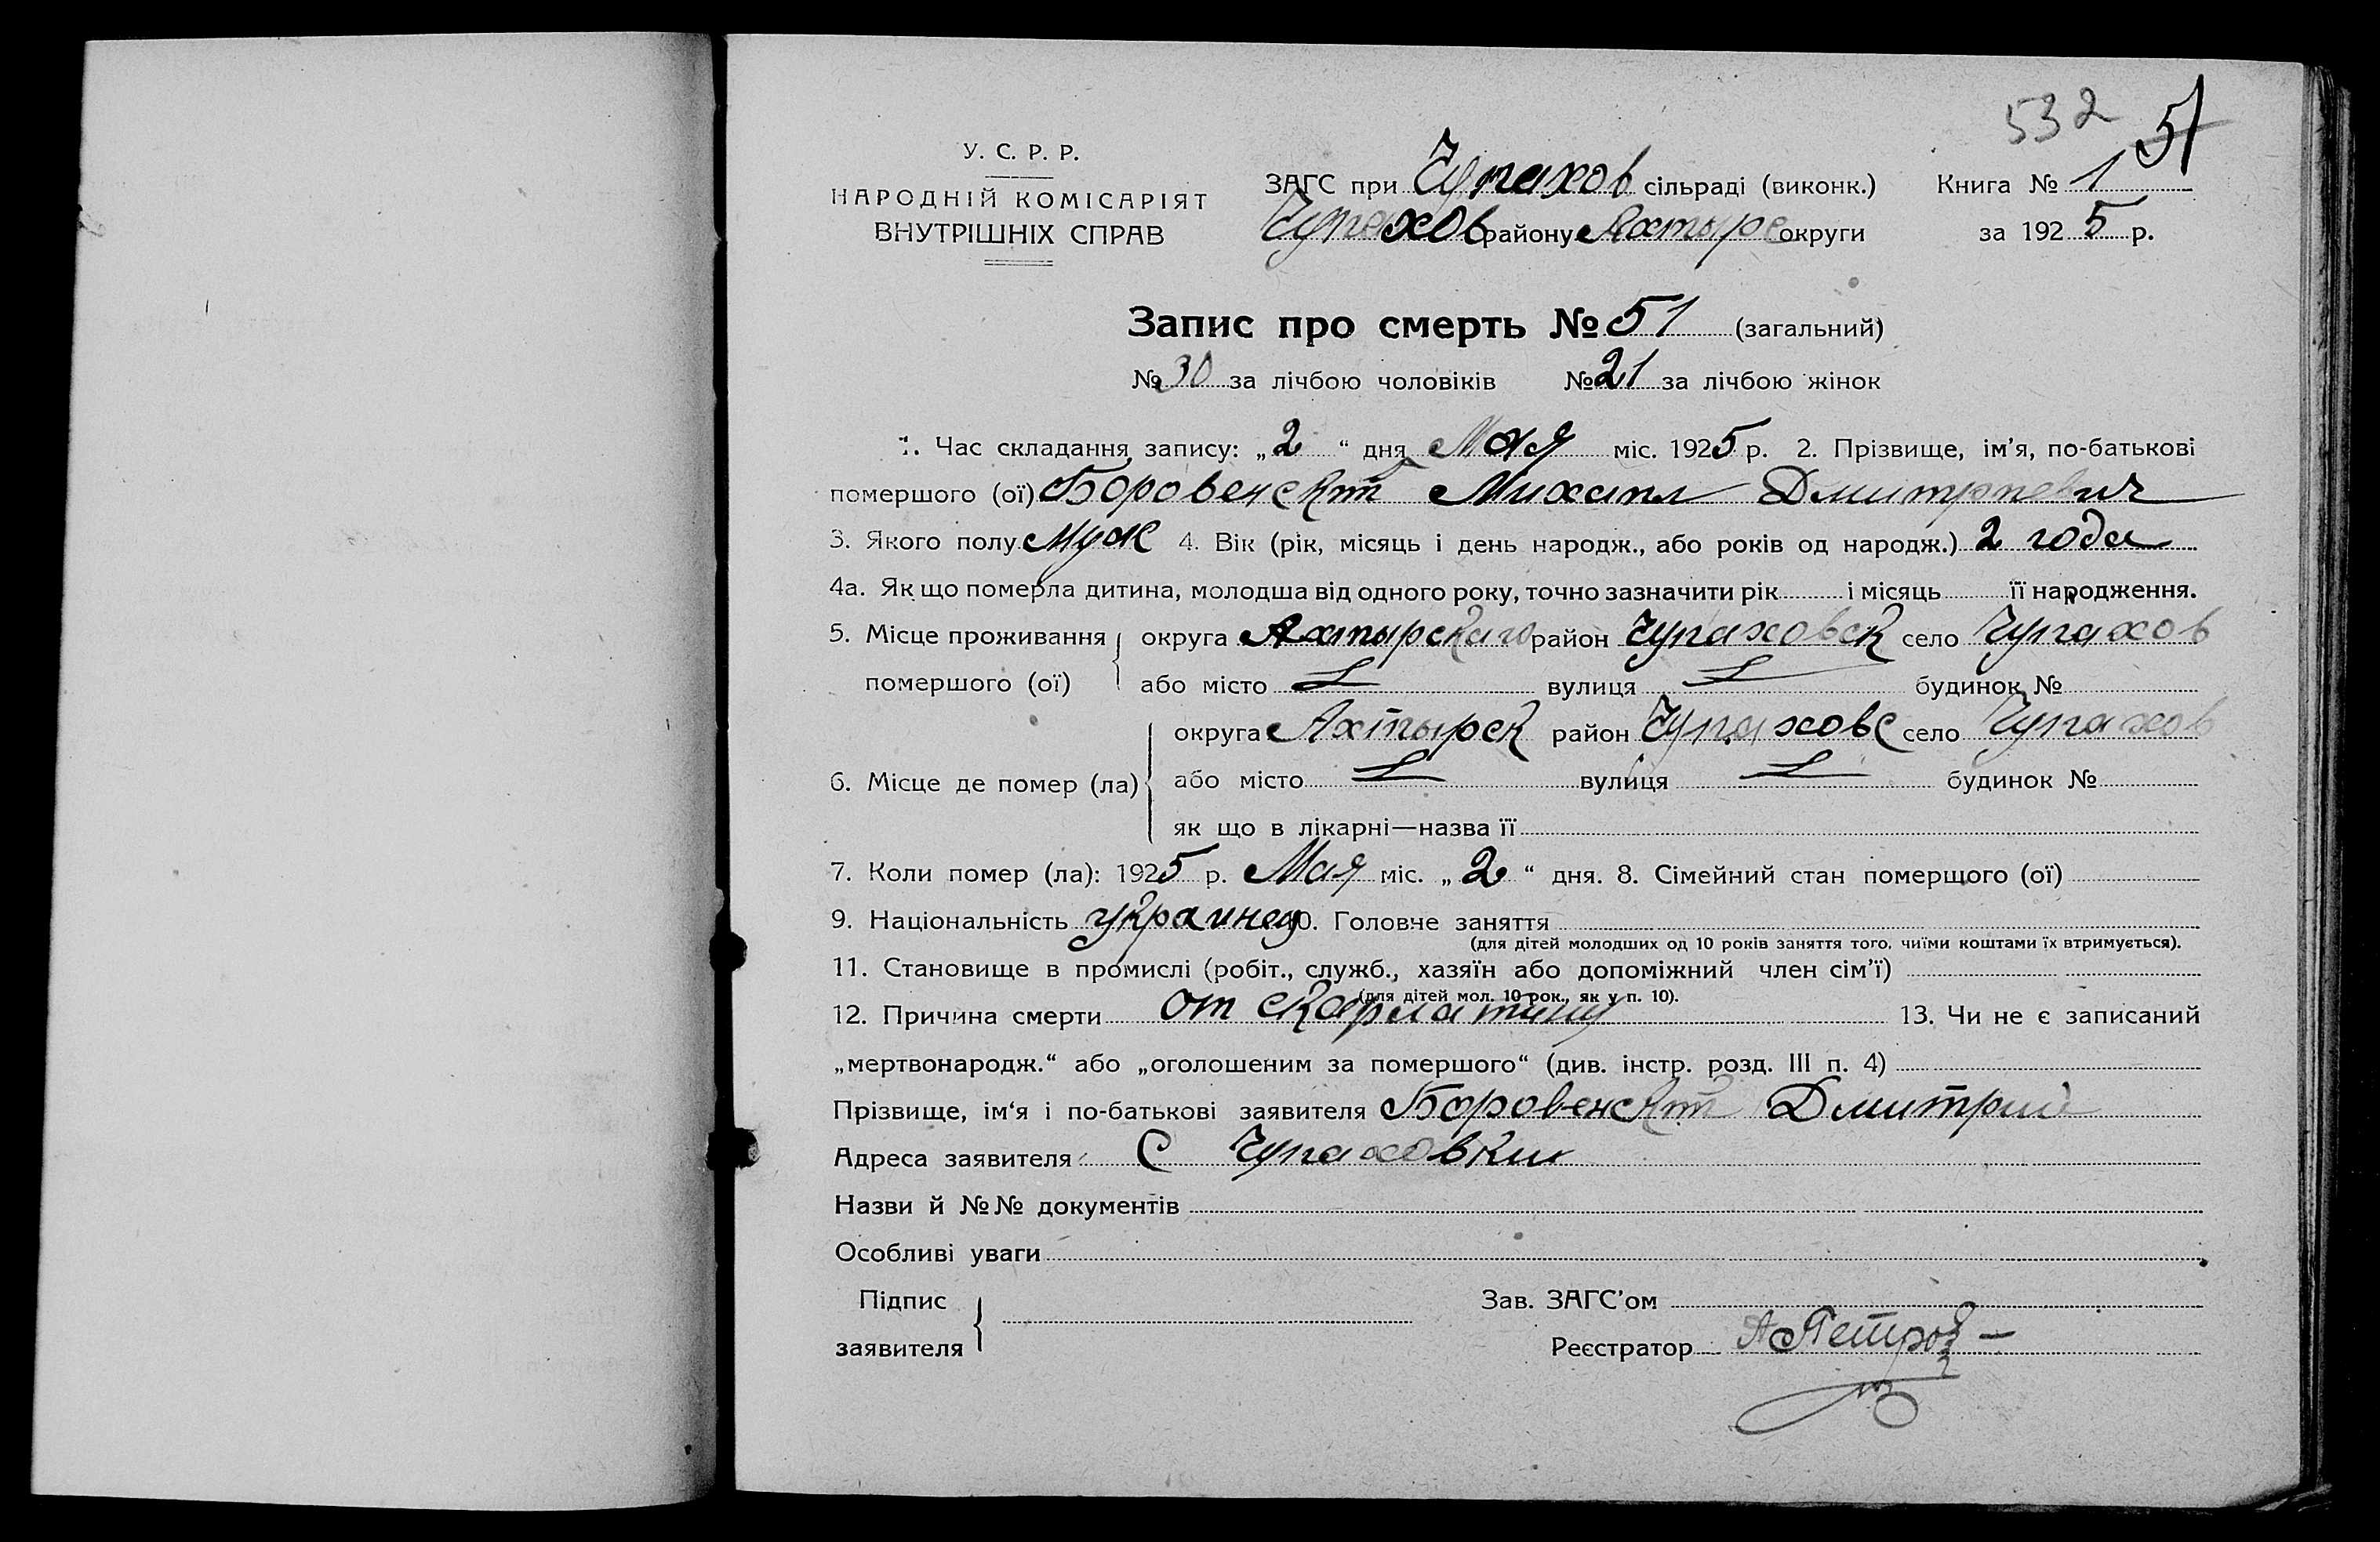 532 51
У. С. Р. Р.
НАРОДНІЙ КОМІСАРІЯТ
ВНУТРІШНІХ СПРАВ
ЗАГС при Чупахов сільраді (виконк.) Книга № 1
Чупахов району Ахтырс округи за 1925 р.
Запис про смерть № 51 (загальний)
№ 30 за лічбою чоловіків № 21 за лічбою жінок
1. Час складання запису: „2“ дня Мая міс. 1925 р. 2. Прізвище, ім'я, по-батькові
помершого (ої) Боровенский Михаил Дмитриевич
3. Якого полу Муж 4. Вік (рік, місяць і день народж., або років од народж.) 2 года
4а. Як що померла дитина, молодша від одного року, точно зазначити рік і місяць її народження.
5. Місце проживання помершого (ої) округа Ахтырскаго район Чупаховск село Чупахов
або місто вулиця будинок №
6. Місце де помер (ла) округа Ахтырск район Чупаховс село Чупахов
або місто вулиця будинок №
як що в лікарні—назва її
7. Коли помер (ла): 1925 р. Мая міс. „2“ дня. 8. Сімейний стан помершого (ої)
9. Національність украинец 10. Головне заняття
(для дітей молодших од 10 років заняття того, чиїми коштами їх втримується).
11. Становище в промислі (робіт., служб., хазяїн або допоміжний член сім'ї)
(для дітей мол. 10 рок., як у п. 10).
12. Причина смерти от скарлатины 13. Чи не є записаний
„мертвонародж.“ або „оголошеним за помершого“ (див. інстр. розд. III п. 4)
Прізвище, ім'я і по-батькові заявителя Боровенский Дмитрий
Адреса заявителя С Чупаховки
Назви й №№ документів
Особливі уваги
Підпис заявителя
Зав. ЗАГС'ом
Реєстратор АПетров